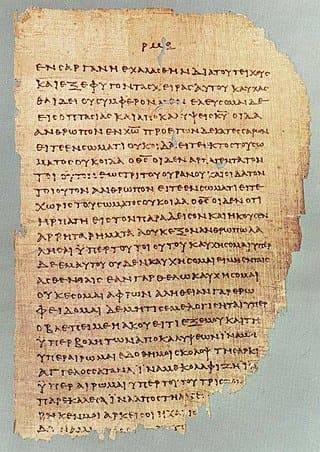 ΕΝ ΣΑΡΓΑΝΗ ΕΧΑΛΑΣΘΗΝ ΔΙΑ ΤΟΥ ΤΕΙΧΟΥΣ
ΚΑΙ ΕΞΕΦΥΓΟΝ ΤΑΣ ΧΕΙΡΑΣ ΑΥΤΟΥ ΚΑΥΧΑΣ
ΘΑΙ ΔΕΙ ΟΥ ΣΥΜΦΕΡΟΝ ΜΕΝ ΕΛΕΥΣΟΜΑΙ ΔΕ
ΕΙΣ ΟΠΤΑΣΙΑΣ ΚΑΙ ΑΠΟΚΑΛΥΨΕΙΣ ΚΥ ΟΙΔΑ
ΑΝΘΡΩΠΟΝ ΕΝ ΧΩ ΠΡΟ ΕΤΩΝ ΔΕΚΑΤΕΣΣΑΡΩΝ
ΕΙΤΕ ΕΝ ΣΩΜΑΤΙ ΟΥΚ ΟΙΔΑ ΕΙΤΕ ΕΚΤΟΣ ΤΟΥ ΣΩ
ΜΑΤΟΣ ΟΥΚ ΟΙΔΑ Ο ΘΣ ΟΙΔΕΝ ΑΡΠΑΓΕΝΤΑ ΤΟΝ
ΤΟΙΟΥΤΟΝ ΕΩΣ ΤΡΙΤΟΥ ΟΥΡΑΝΟΥ ΚΑΙ ΟΙΔΑ ΤΟΝ
ΤΟΙΟΥΤΟΝ ΑΝΘΡΩΠΟΝ ΕΙΤΕ ΕΝ ΣΩΜΑΤΙ ΕΙΤΕ
ΧΩΡΙΣ ΤΟΥ ΣΩΜΑΤΟΣ ΟΥΚ ΟΙΔΑ Ο ΘΣ ΟΙΔΕΝ ΟΤΙ
ΗΡΠΑΓΗ ΕΙΣ ΤΟΝ ΠΑΡΑΔΕΙΣΟΝ ΚΑΙ ΗΚΟΥΣΕΝ
ΑΡΡΗΤΑ ΡΗΜΑΤΑ Α ΟΥΚ ΕΞΟΝ ΑΝΘΡΩΠΩ ΛΑ
ΛΗΣΑΙ ΥΠΕΡ ΤΟΥ ΤΟΙΟΥΤΟΥ ΚΑΥΧΗΣΟΜΑΙ ΥΠΕΡ
ΔΕ ΕΜΑΥΤΟΥ ΟΥΔΕΝ ΚΑΥΧΗΣΟΜΑΙ ΕΙ ΜΗ ΕΝ ΤΑΙΣ
ΑΣΘΕΝΕΙΑΙΣ ΕΑΝ ΓΑΡ ΘΕΛΩ ΚΑΥΧΗΣΟΜΑΙ
ΟΥΚ ΕΣΟΜΑΙ ΑΦΡΩΝ ΑΛΗΘΕΙΑΝ ΓΑΡ ΕΡΩ
ΦΕΙΔΟΜΑΙ ΔΕ ΜΗ ΤΙΣ ΕΜΕ ΛΟΓΙΣΗΤΑΙ ΥΠΕΡ
Ο ΒΛΕΠΕΙ ΜΕ Η ΑΚΟΥΕΙ ΤΙ ΕΞ ΕΜΟΥ ΚΑΙ ΤΗ
ΥΠΕΡΒΟΛΗ ΤΩΝ ΑΠΟΚΑΛΥΨΕΩΝ ΙΝΑ ΜΗ
ΥΠΕΡΑΙΡΩΜΑΙ ΕΔΟΘΗ ΜΟΙ ΣΚΟΛΟΨ ΤΗ ΣΑΡΚΙ
ΑΓΓΕΛΟΣ ΣΑΤΑΝΑ ΙΝΑ ΜΕ ΚΟΛΑΦΙΖΗ
ΥΠΕΡΑΙΡΩΜΑΙ ΥΠΕΡ ΤΟΥΤΟΥ ΤΡΙΣ ΤΟΝ
ΠΑΡΕΚΑΛΕΣΑ ΙΝΑ ΑΠΟΣΤΗ
ΑΡΚΕΙ ΣΟΙ Η ΧΑΡΙΣ